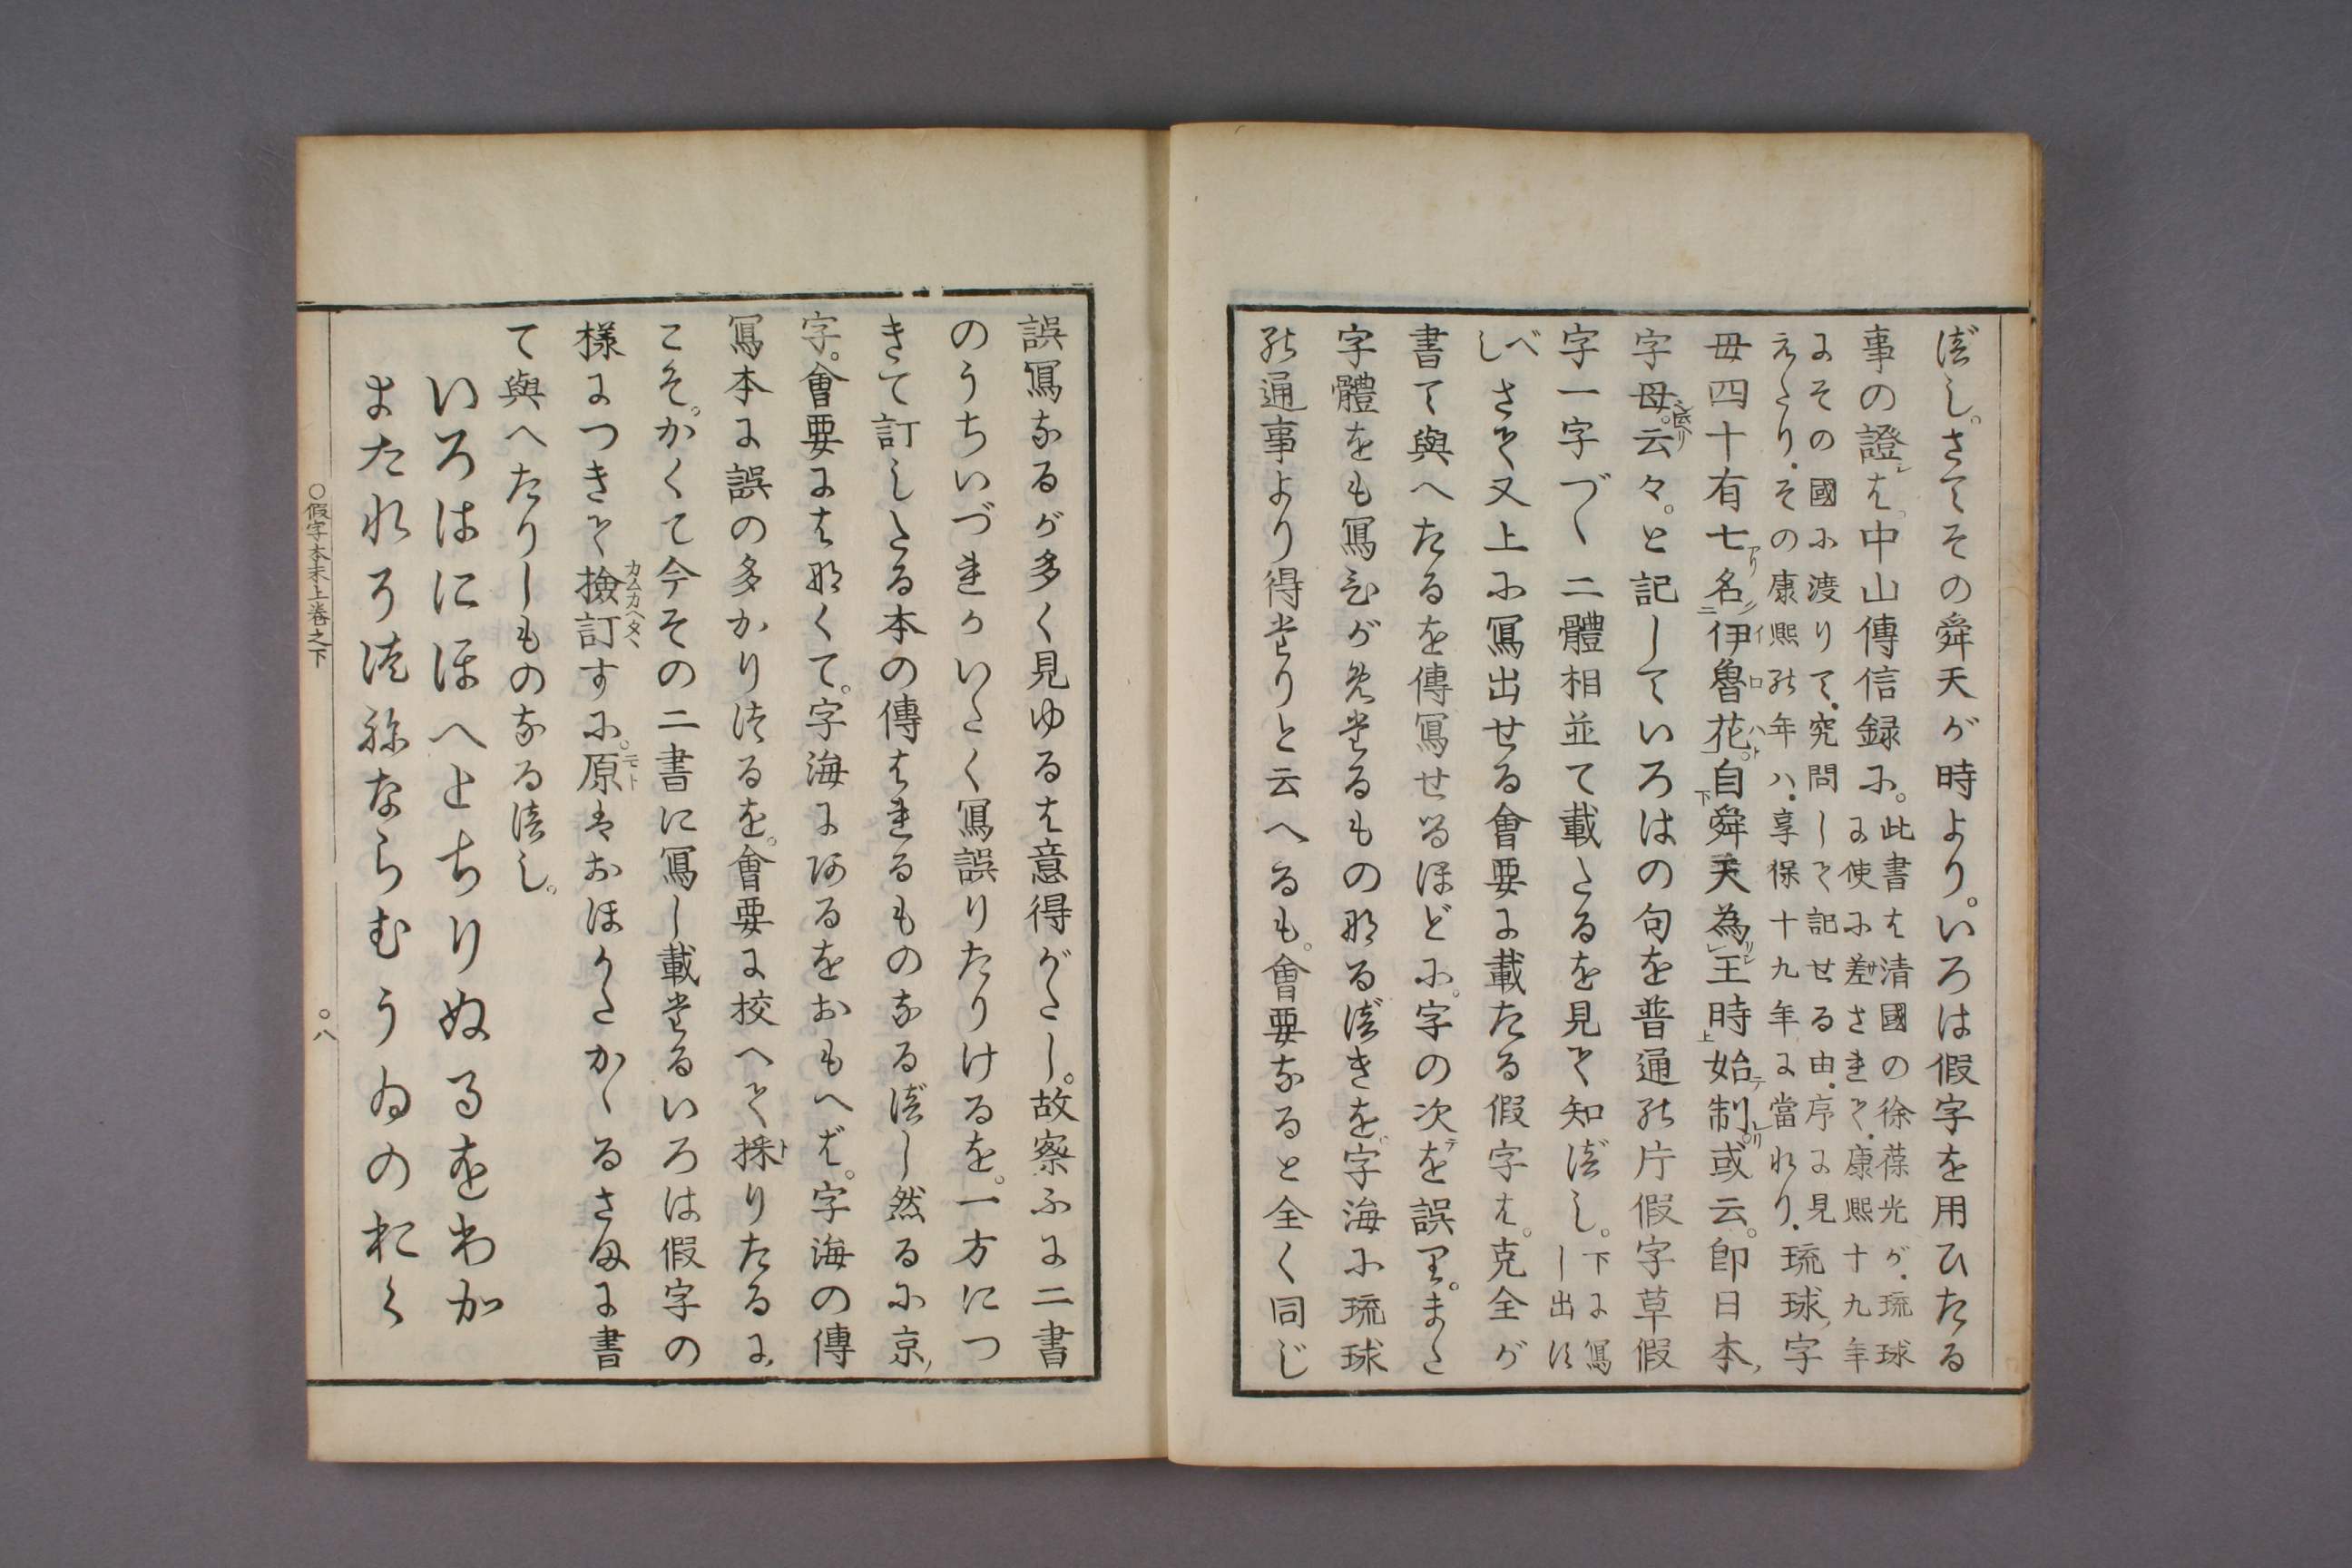 べし。さてその舜天が時より。いろは假字を用ひたる
事の證は。中山傳信録に。此書は清國の徐葆光が。琉球
に使に差されて。康熙十九年
にその國に渡りて。究問して記せる由。序に見
えたり。その康熙の年ハ。享保十九年に當れり。琉球字
母四十有七名伊魯花。自舜天為王時始制。或云。即日本
字母。云々。と記していろはの句を普通の片假字草假
字一字づゝ二體相並て載たるを見て知べし。下に寫
し出す
べし さて又上に寫出せる會要に載たる假字は。克全が
書て與へたるを傳寫せるほどに。字の次を誤り。また
字體をも寫ひがめたるもの那るべきを。字海に琉球
の通事より得たりと云へるも。會要なると全く同じ
誤寫なるが多く見ゆるは意得がたし。故察ふに二書
のうちいづれかいたく寫誤りたりけるを。一方につ
きて訂したる本の傳はれるものなるべし然るに京
字。會要には那くて。字海にあるをおもへば。字海の傳
寫本に誤の多かりつるを。會要に校へて採りたるに
こそ。かくて今その二書に寫し載たるいろは假字の
樣につきて撿訂すに。原はおほかたかゝるさまに書
て與へたりしものなるべし。
いろはにほへとちりぬるをわか
よたれそつねならむうゐのおく
○假字本末上卷之下
○八